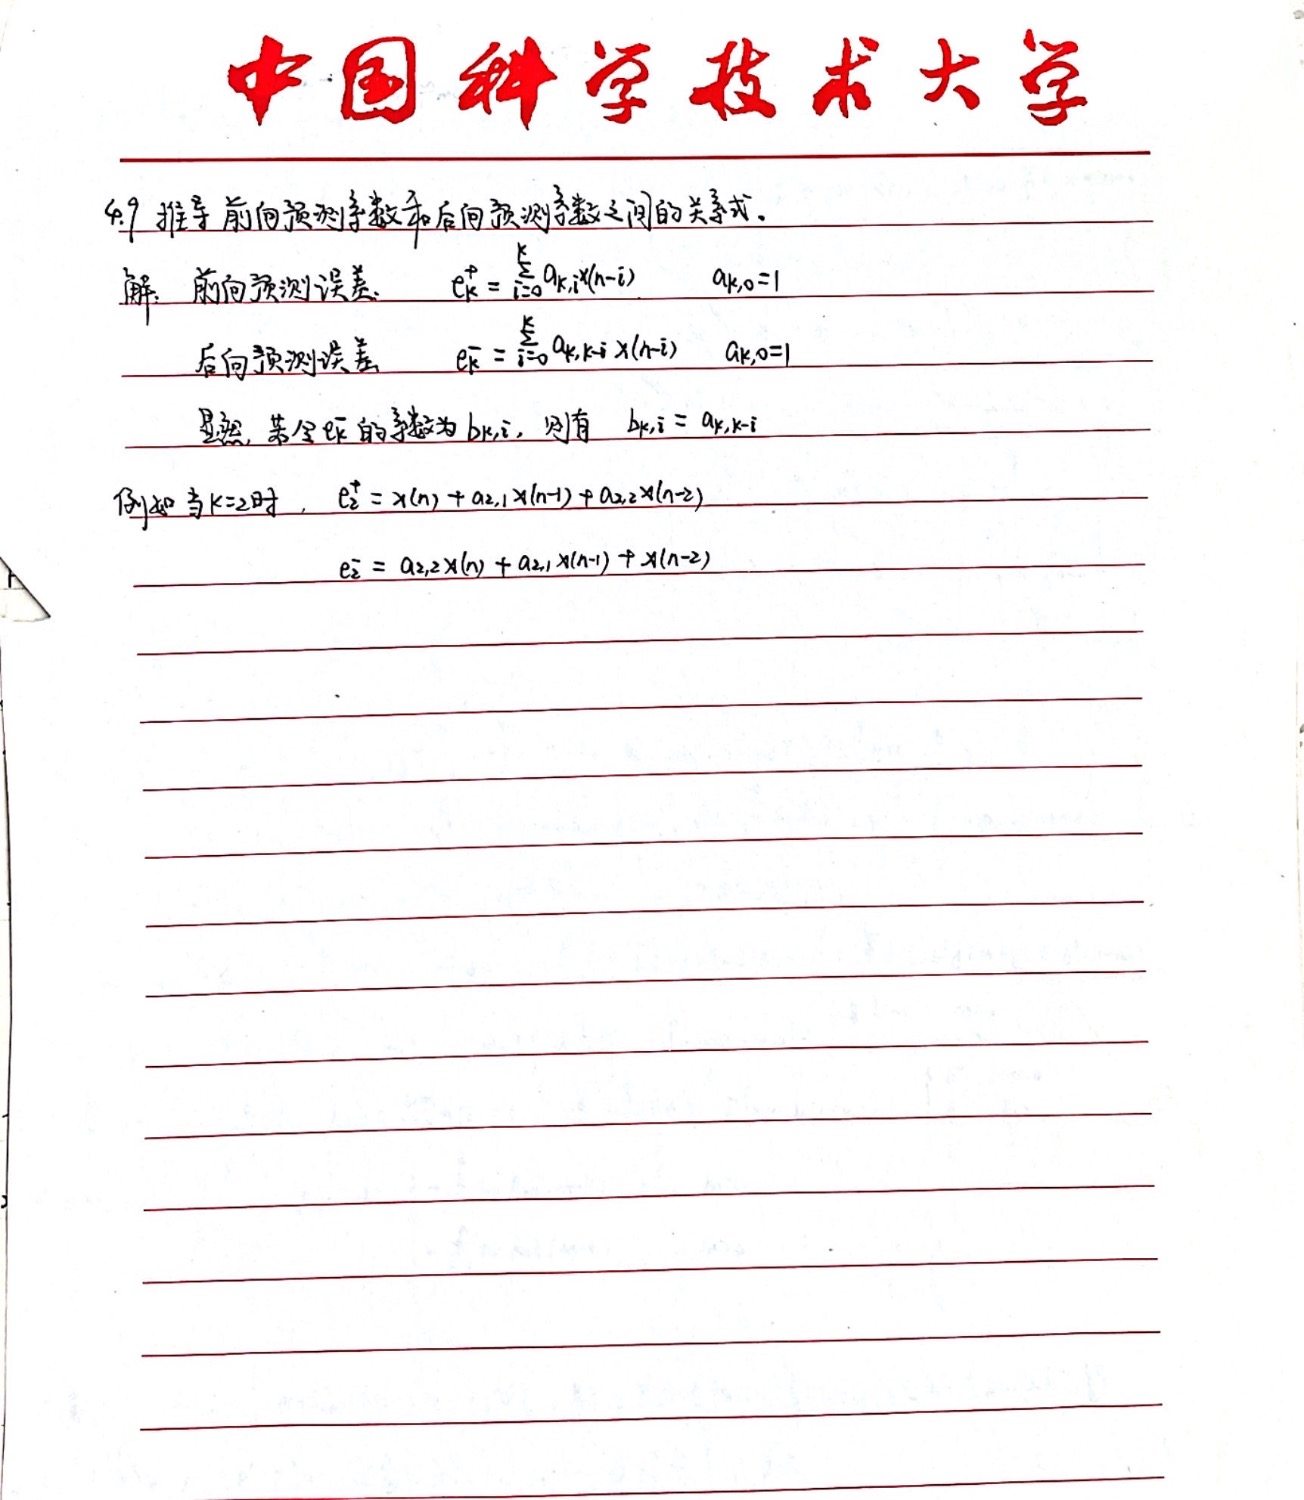 中国科学技术大学
4.9 推导前向预测系数和后向预测系数之间的关系式.
解: 前向预测误差: e_k^+ = Σ_{i=0}^{k} a_{k,i}x(n-i) a_{k,0}=1
后向预测误差 e_k^- = Σ_{i=0}^{k} a_{k,k-i}x(n-i) a_{k,0}=1
显然, 若令e_k^-的系数为b_{k,i}, 则有 b_{k,i} = a_{k,k-i}
例如当k=2时, e_2^+ = x(n) + a_{2,1}x(n-1) + a_{2,2}x(n-2)
e_2^- = a_{2,2}x(n) + a_{2,1}x(n-1) + x(n-2)